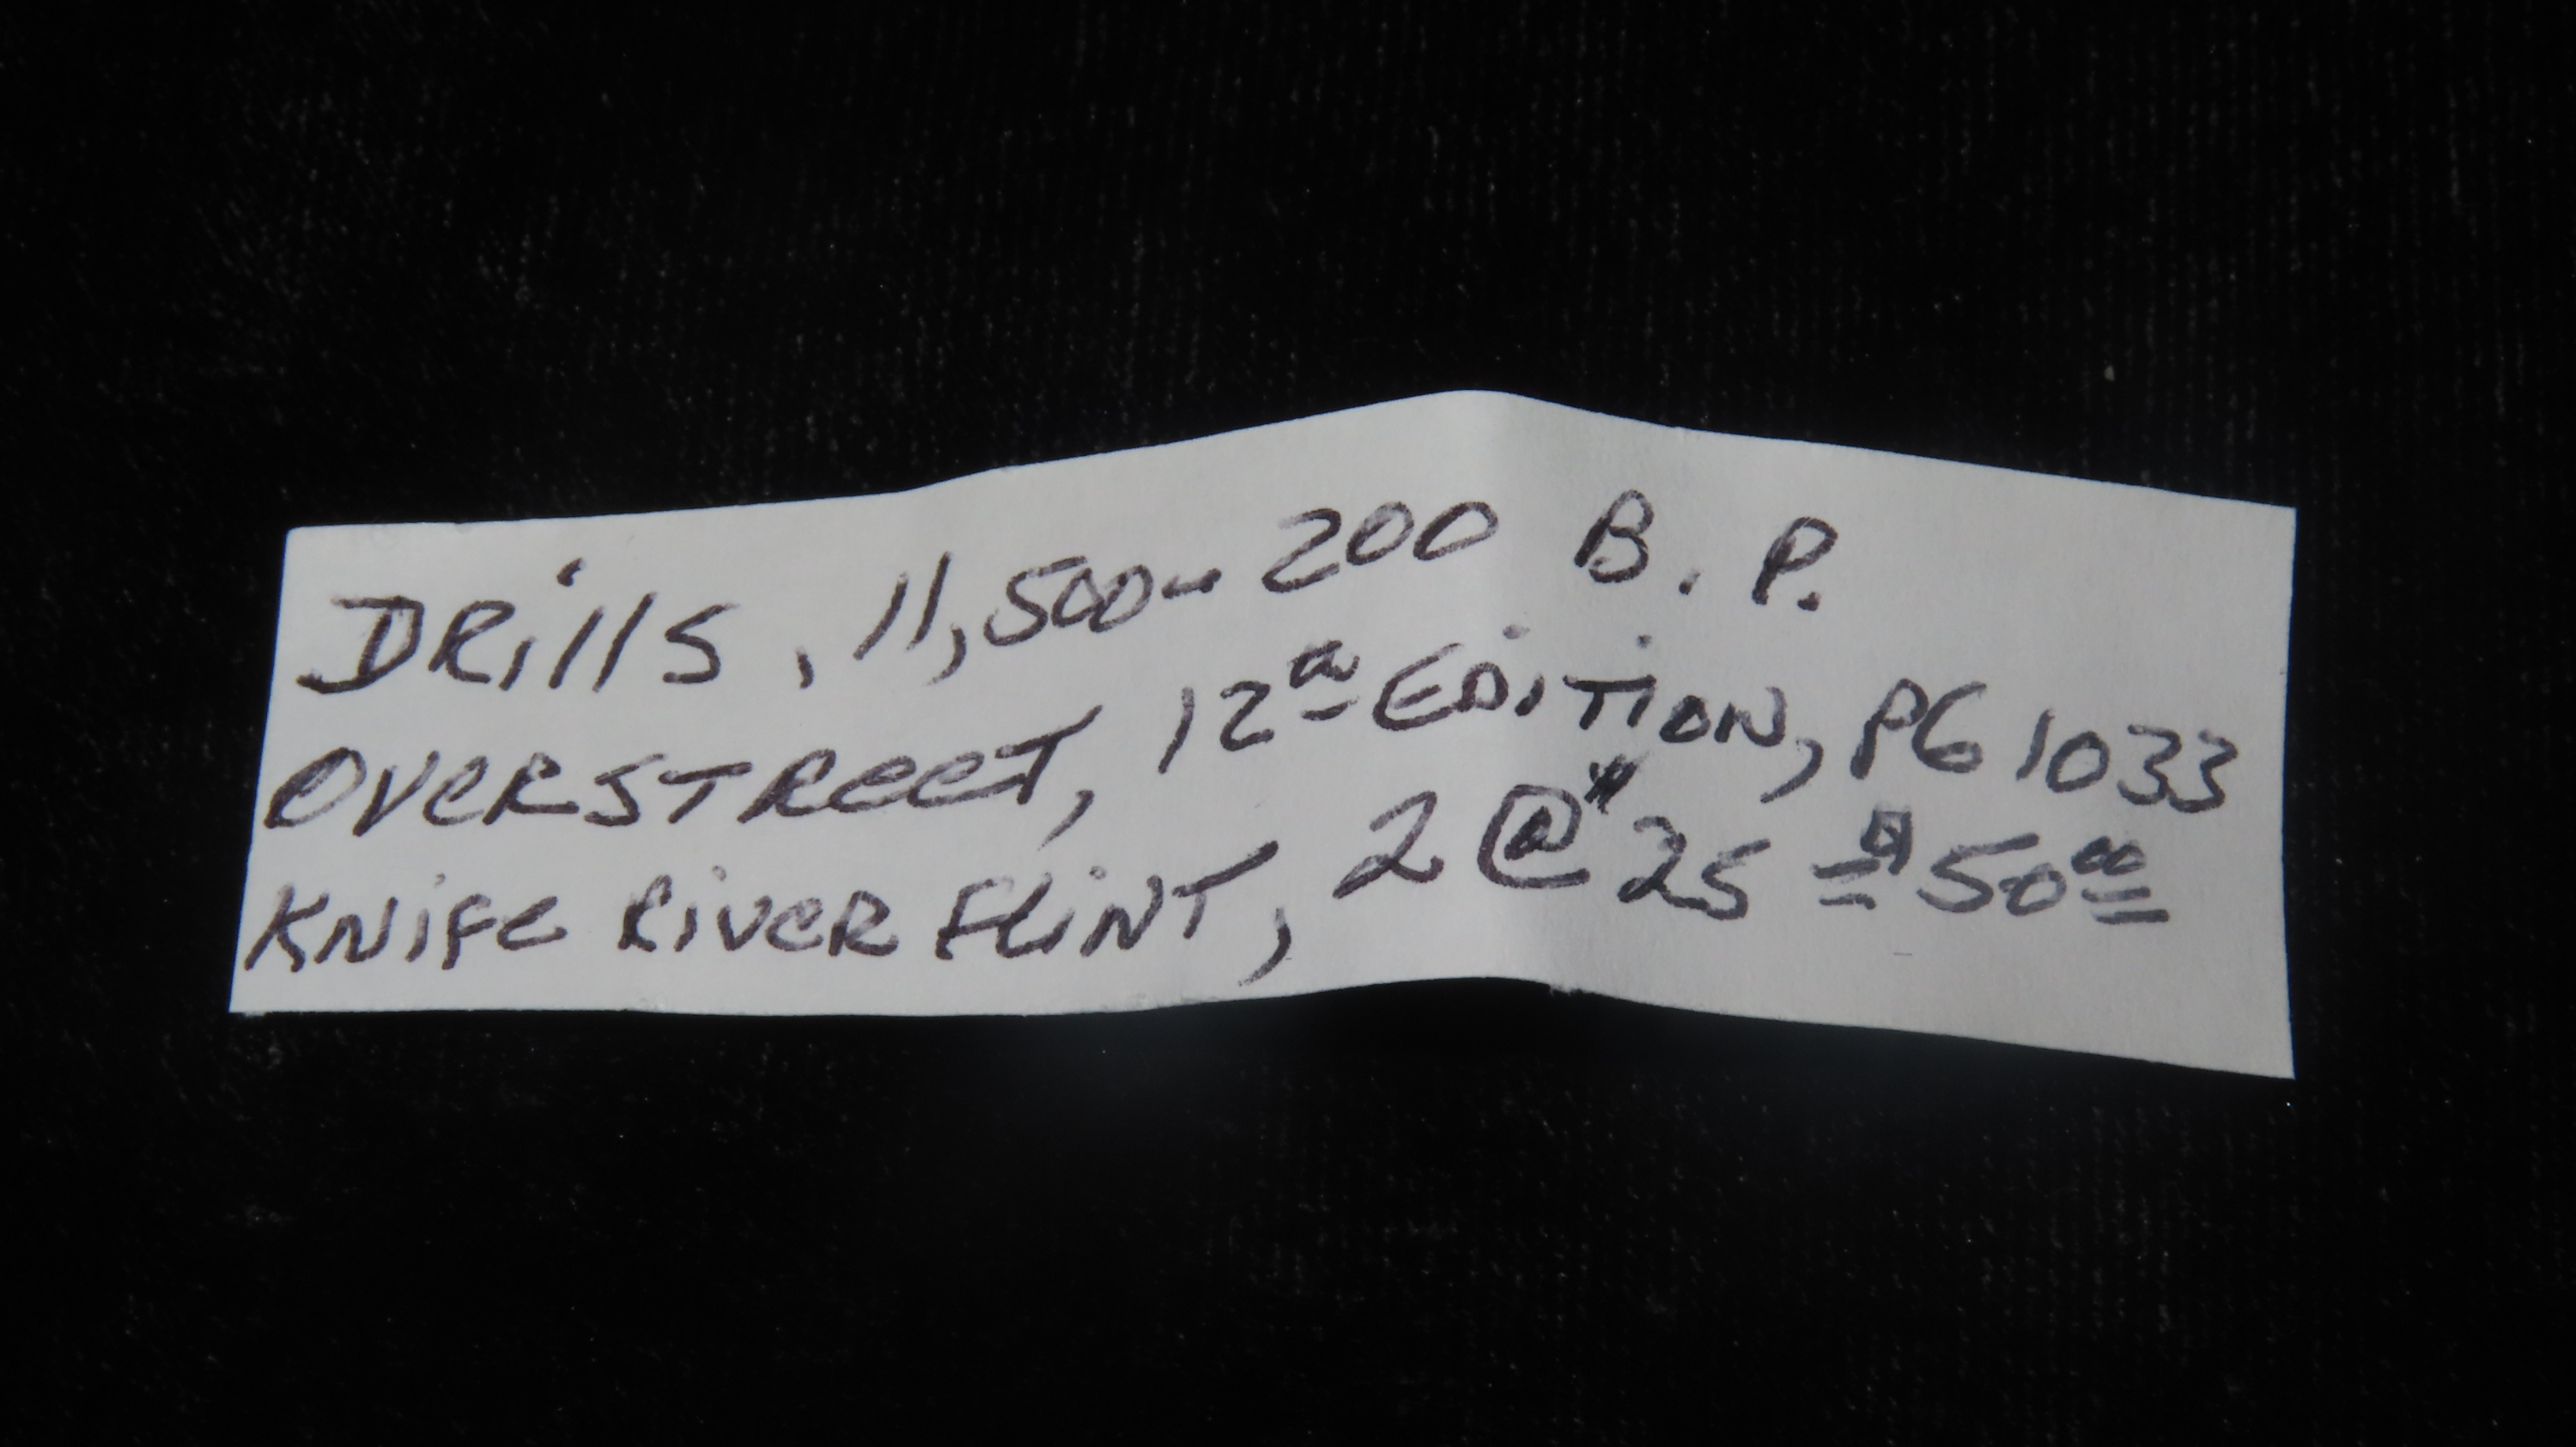 DRills, 11,500-200 B.P.
OVERSTREET, 12th EDITION, PG 1033
KNIFE RIVER FLINT, 2 @ $25 = $50.00